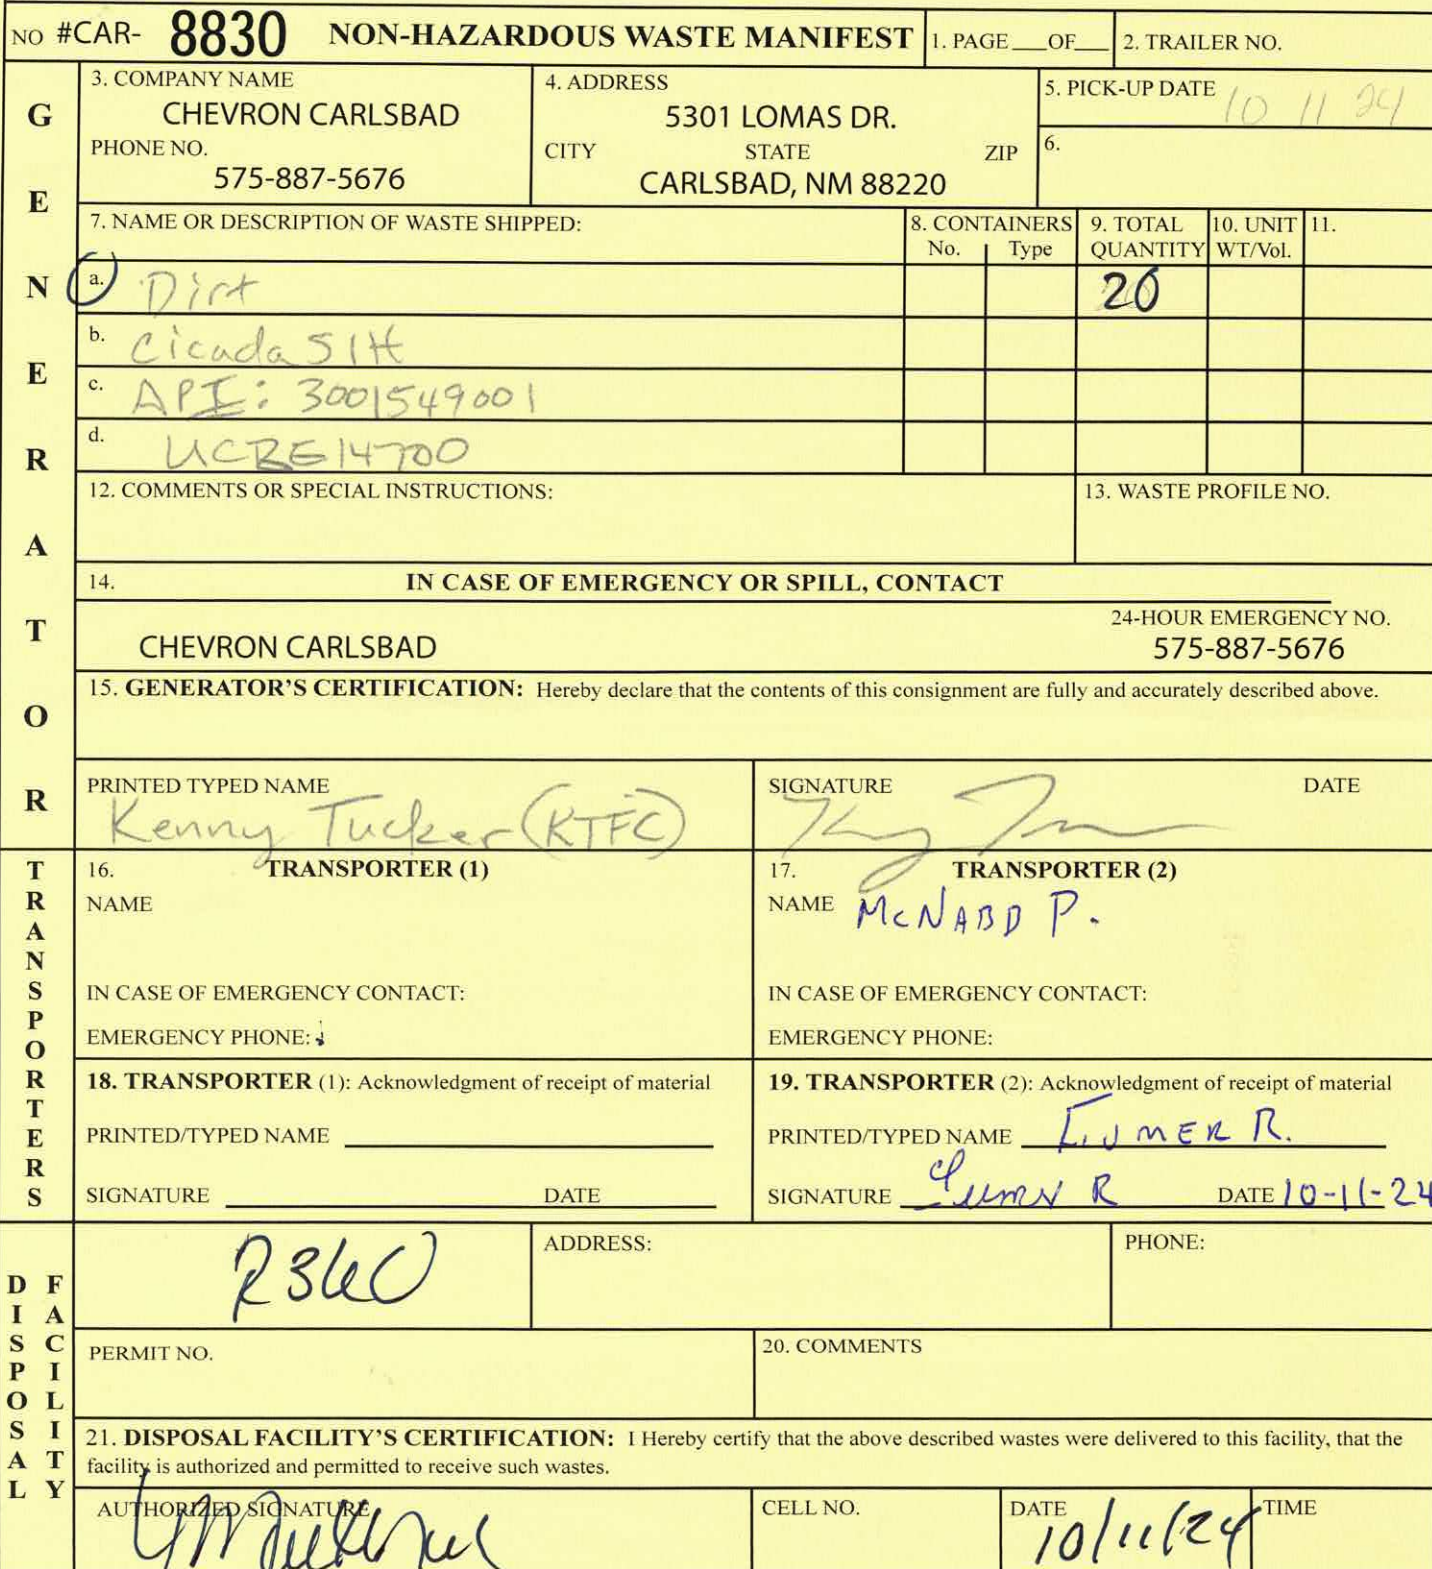 NO #CAR- 8830 NON-HAZARDOUS WASTE MANIFEST 1. PAGE ___ OF ___ 2. TRAILER NO.
GENERATOR
3. COMPANY NAME
CHEVRON CARLSBAD
PHONE NO.
575-887-5676
4. ADDRESS
5301 LOMAS DR.
CITY STATE ZIP
CARLSBAD, NM 88220
5. PICK-UP DATE 10 11 24
6.
7. NAME OR DESCRIPTION OF WASTE SHIPPED:
8. CONTAINERS
No. Type
9. TOTAL QUANTITY
10. UNIT WT/Vol.
11.
a. Dirt 20
b. Cicada 51H
c. API: 3001549001
d. UCRE14700
12. COMMENTS OR SPECIAL INSTRUCTIONS:
13. WASTE PROFILE NO.
14. IN CASE OF EMERGENCY OR SPILL, CONTACT
24-HOUR EMERGENCY NO.
CHEVRON CARLSBAD 575-887-5676
15. GENERATOR'S CERTIFICATION: Hereby declare that the contents of this consignment are fully and accurately described above.
PRINTED TYPED NAME
Kenny Tucker (KTFC)
SIGNATURE DATE
TRANSPORTERS
16. TRANSPORTER (1)
NAME
IN CASE OF EMERGENCY CONTACT:
EMERGENCY PHONE:
17. TRANSPORTER (2)
NAME McNABB P.
IN CASE OF EMERGENCY CONTACT:
EMERGENCY PHONE:
18. TRANSPORTER (1): Acknowledgment of receipt of material
PRINTED/TYPED NAME
SIGNATURE DATE
19. TRANSPORTER (2): Acknowledgment of receipt of material
PRINTED/TYPED NAME R.
SIGNATURE R DATE 10-11-24
DISPOSAL FACILITY
R360
ADDRESS:
PHONE:
PERMIT NO.
20. COMMENTS
21. DISPOSAL FACILITY'S CERTIFICATION: I Hereby certify that the above described wastes were delivered to this facility, that the
facility is authorized and permitted to receive such wastes.
AUTHORIZED SIGNATURE
CELL NO.
DATE 10/11/24
TIME